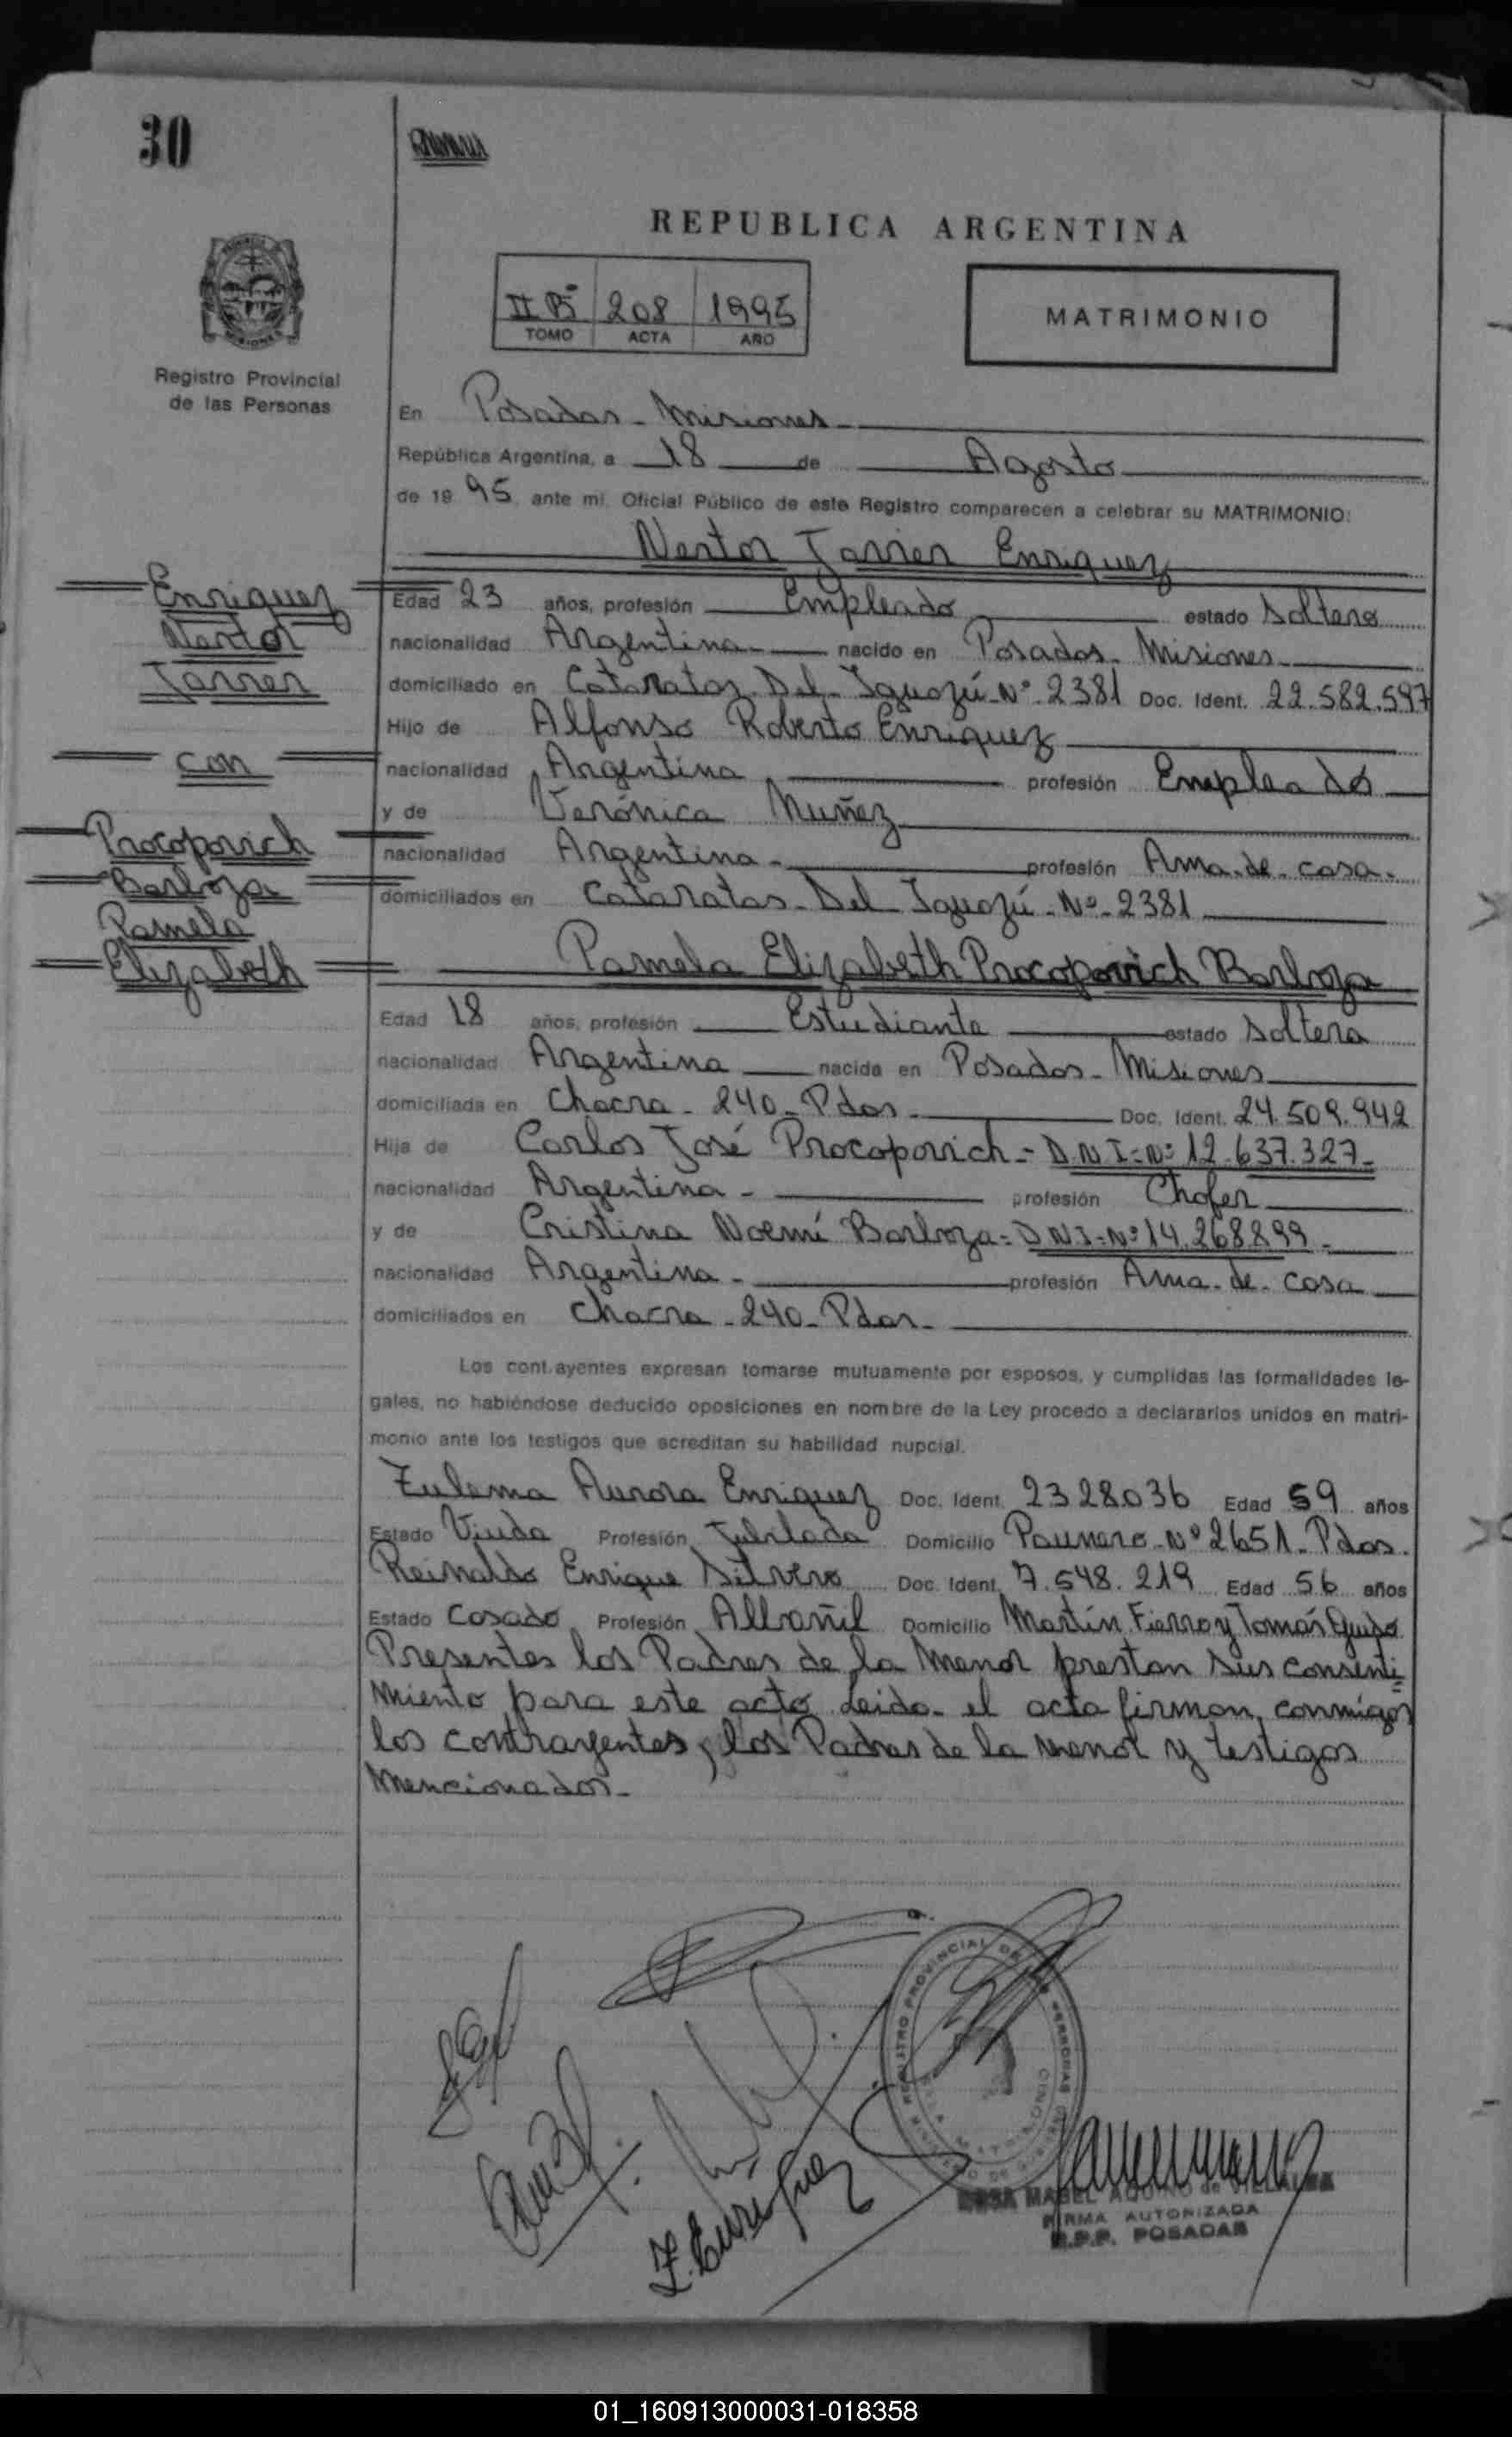 30
REPUBLICA ARGENTINA
II Bº 208 1995
TOMO ACTA AÑO
MATRIMONIO
Registro Provincial
de las Personas
En Posadas - Misiones
República Argentina, a 18 de Agosto
de 19 95 ante mí, Oficial Público de este Registro comparecen a celebrar su MATRIMONIO:
Nestor Javier Enriquez
Enriquez
Nestor
Javier
con
Procopovich
Barboza
Pamela
Elizabeth
Edad 23 años, profesión Empleado estado Soltero
nacionalidad Argentina nacido en Posadas - Misiones
domiciliado en Cataratas Del Iguazú - Nº 2381 Doc. Ident. 22.582.597
Hijo de Alfonso Roberto Enriquez
nacionalidad Argentina profesión Empleado
y de Verónica Nuñez
nacionalidad Argentina - profesión Ama - de - casa -
domiciliados en Cataratas - Del - Iguazú - Nº - 2381
Pamela Elizabeth Procopovich Barboza
Edad 18 años, profesión Estudiante estado Soltera
nacionalidad Argentina nacida en Posadas - Misiones
domiciliada en Chacra - 240 - Pdas - Doc. Ident. 24.509.942
Hija de Carlos José Procopovich = D.N.I = Nº 12.637.327 -
nacionalidad Argentina - profesión Chofer
y de Cristina Noemí Barboza = D.N.I = Nº 14.268.899 -
nacionalidad Argentina - profesión Ama - de - casa
domiciliados en Chacra - 240 - Pdas -
Los cont.ayentes expresan tomarse mutuamente por esposos, y cumplidas las formalidades le-
gales, no habiéndose deducido oposiciones en nombre de la Ley procedo a declararlos unidos en matri-
monio ante los testigos que acreditan su habilidad nupcial.
Zulema Aurora Enriquez Doc. Ident. 2328036 Edad 59 años
Estado Viuda Profesión Jubilada Domicilio Paunero - Nº 2651 - Pdas.
Reinaldo Enrique Silvero Doc. Ident. 7.548.219 Edad 56 años
Estado Casado Profesión Albañil Domicilio Martín Fierro y Tomás Guido
Presentes los Padres de la Menor prestan sus consenti=
miento para este acto Leido - el acta firman, conmigo,
los contrayentes, los Padres de la menor y testigos
mencionados -
Z. Enriquez
REGISTRO PROVINCIAL DE LAS PERSONAS
ROSA MABEL AQUINO de VILLALBA
FIRMA AUTORIZADA
R.P.P. POSADAS
01_160913000031-018358